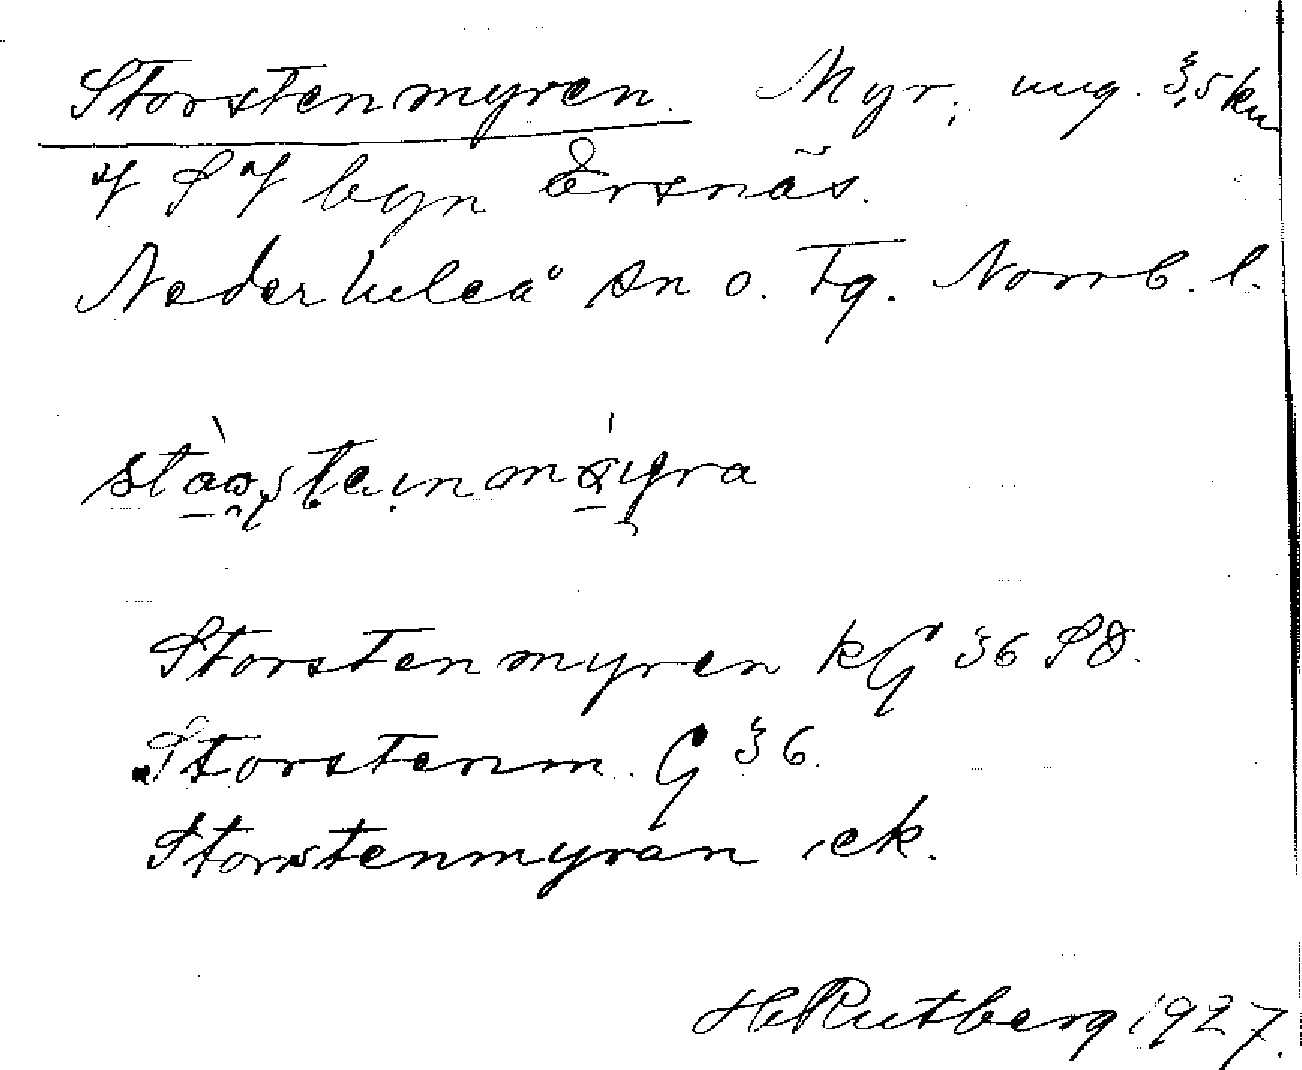 Storstenmyren. Myr, ung. 3,5 km
f S f byn Ersnäs.
Nederluleå sn o. Tg. Norrb. l.
Storstenmyren kG 36 SO.
Storstenm. G 36.
Storstenmyran ek.
H Rutberg 1927.